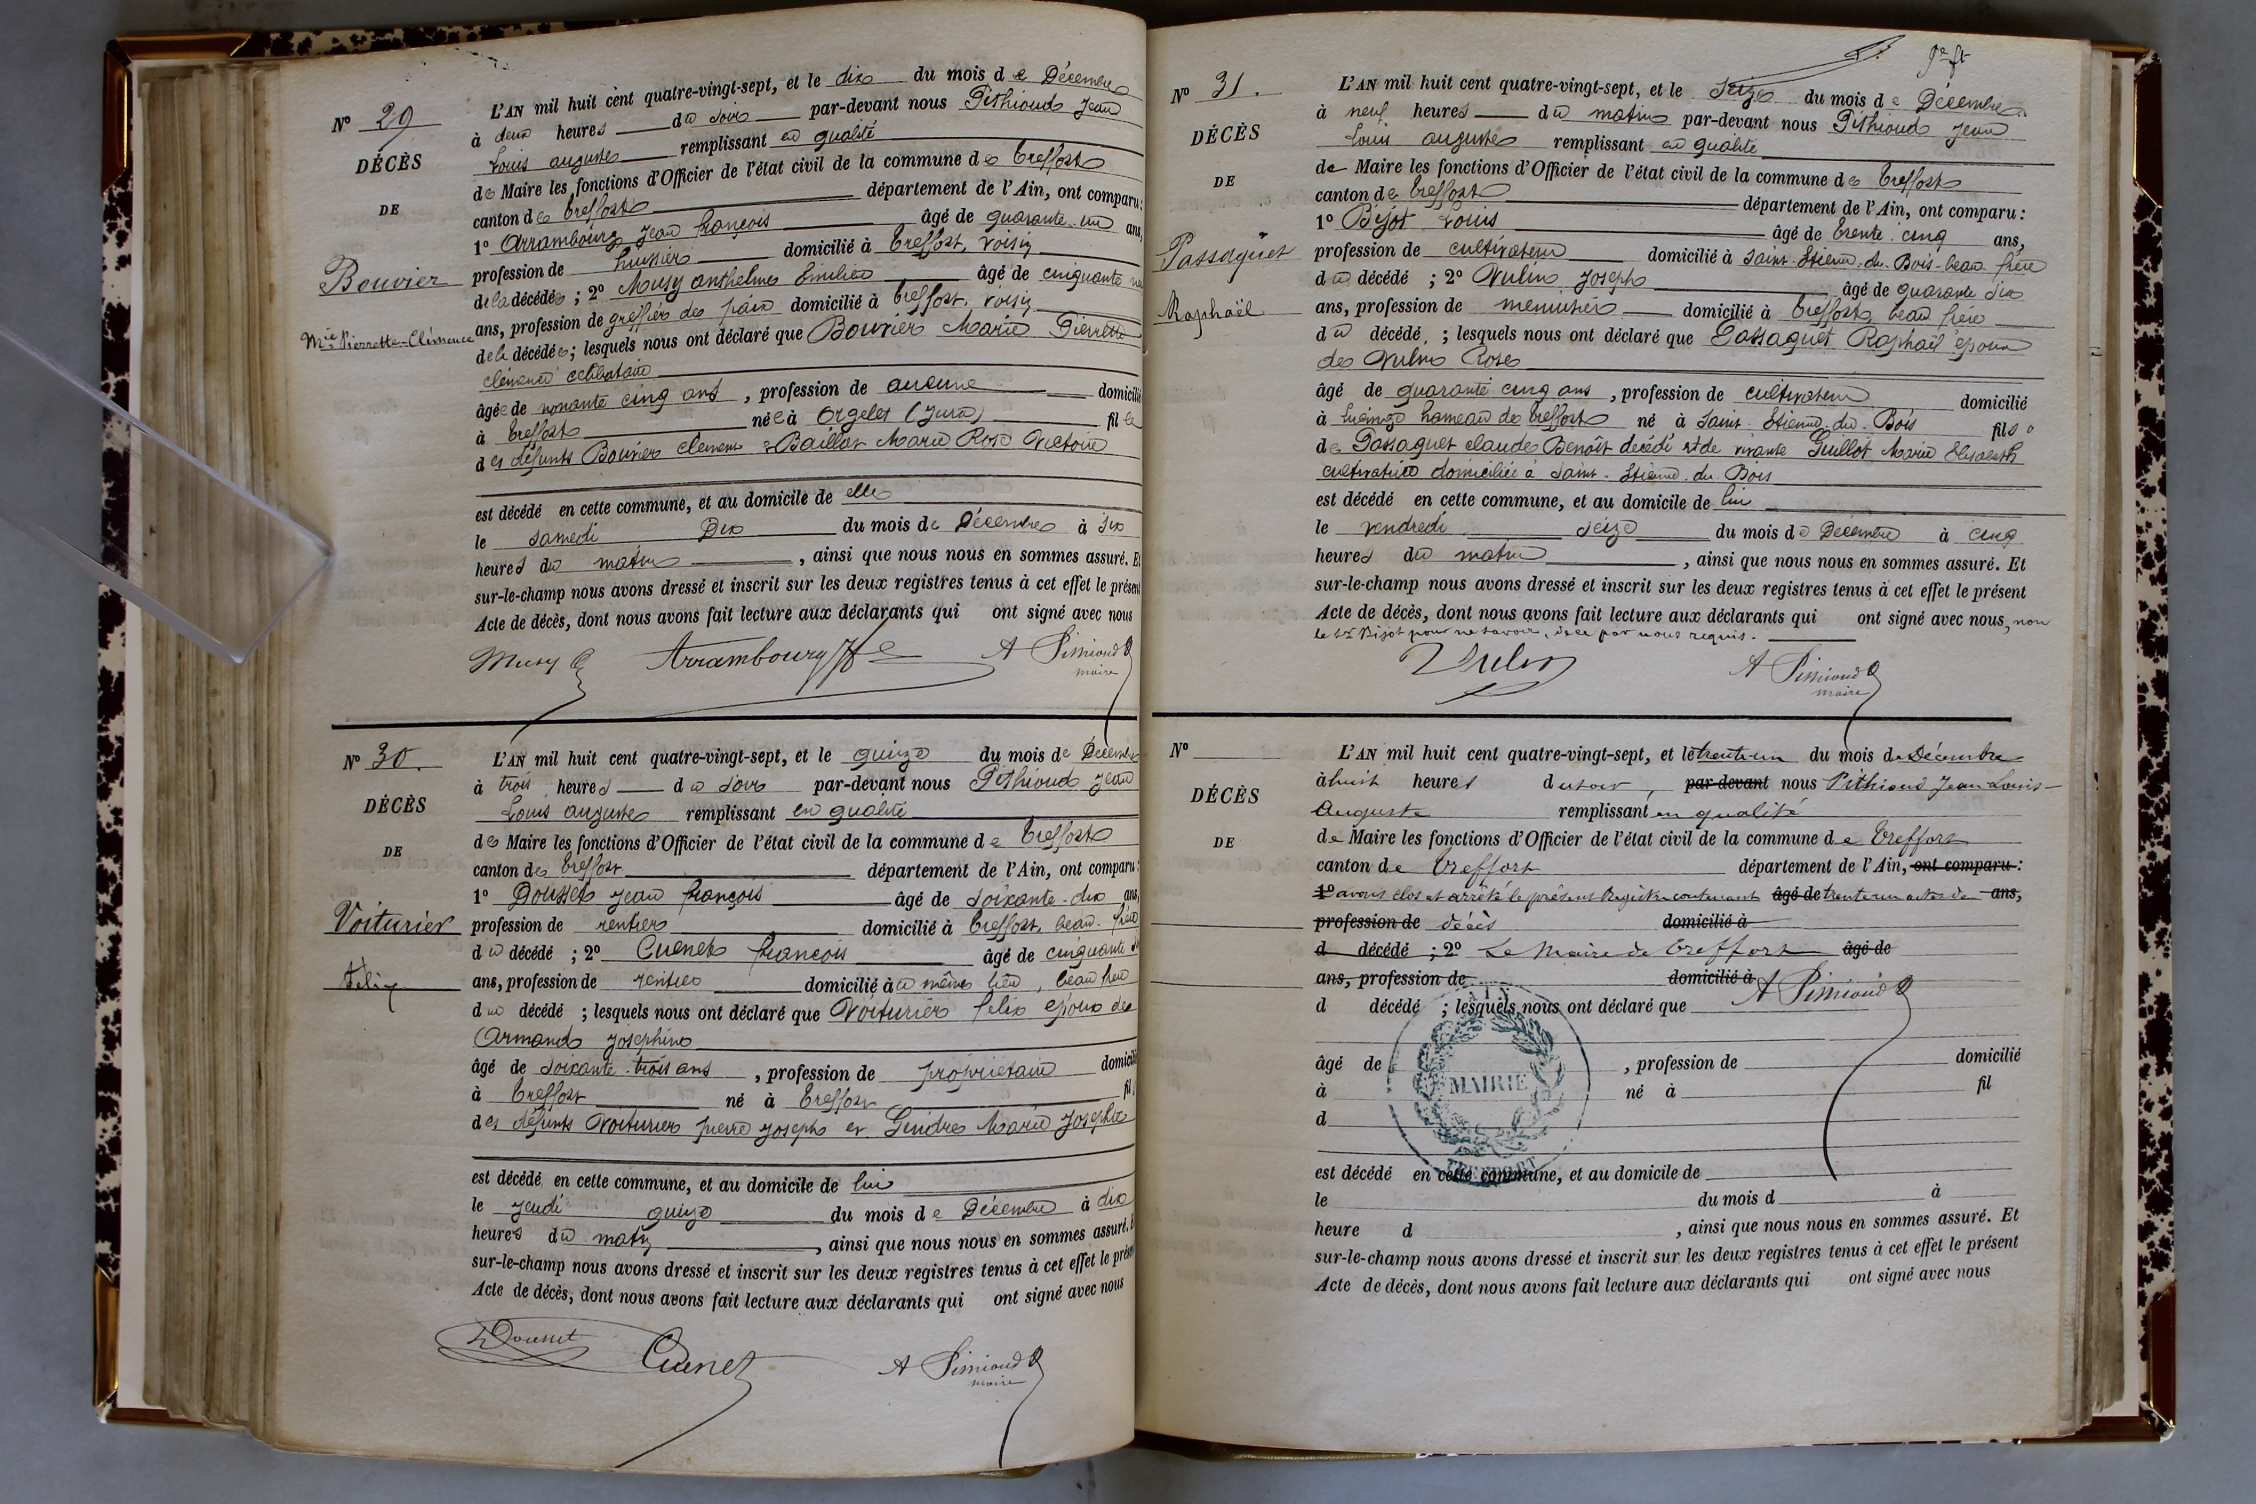 Nº 29
DÉCÈS
DE
Bouvier
Mie Pierrette-Clémence
L'AN mil huit cent quatre-vingt-sept, et le dix du mois de Décembre
à deux heures du soir par-devant nous Pithioud Jean
Louis auguste remplissant en qualité
de Maire les fonctions d'Officier de l'état civil de la commune de Treffort
canton de Treffort département de l'Ain, ont comparu:
1º Arrambourg Jean françois âgé de quarante un ans,
profession de huissier domicilié à Treffort, voisin
de la décédée; 2º Musy anthelme Emilien âgé de cinquante
ans, profession de greffier de paix domicilié à Treffort, voisin
de la décédée; lesquels nous ont déclaré que Bouvier Marie Pierrette
clémence célibataire
âgée de nonante cinq ans, profession de aucune domicilié
à Treffort née à Orgelet (Jura) fille
des défunts Bouvier clement & Baillot Marie Rose Victoire
est décédé en cette commune, et au domicile de elle
le samedi Dix du mois de Décembre à six
heures du matin, ainsi que nous nous en sommes assuré. Et
sur-le-champ nous avons dressé et inscrit sur les deux registres tenus à cet effet le présent
Acte de décès, dont nous avons fait lecture aux déclarants qui ont signé avec nous
Musy Arrambourg A Pithioud
maire
Nº 30.
DÉCÈS
DE
Voiturier
Félix
L'AN mil huit cent quatre-vingt-sept, et le quinze du mois de Décembre
à trois heures du soir par-devant nous Pithioud Jean
Louis auguste remplissant en qualité
de Maire les fonctions d'Officier de l'état civil de la commune de Treffort
canton de Treffort département de l'Ain, ont comparu:
1º Dousset Jean françois âgé de soixante-dix ans,
profession de rentier domicilié à Treffort, beau-frère
du décédé; 2º Cuenet françois âgé de cinquante
ans, profession de rentier domicilié à même lieu, beau frère
du décédé; lesquels nous ont déclaré que Voiturier felix époux de
Armand Josephine
âgé de soixante-trois ans, profession de propriétaire domicilié
à Treffort né à Treffort fil
des défunts Voiturier pierre joseph et Gindre Marie Josephte
est décédé en cette commune, et au domicile de lui
le jeudi quinze du mois de Décembre à dix
heures du matin, ainsi que nous nous en sommes assuré. Et
sur-le-champ nous avons dressé et inscrit sur les deux registres tenus à cet effet le présent
Acte de décès, dont nous avons fait lecture aux déclarants qui ont signé avec nous
Dousset Cuenet A Pithioud
maire
Nº 31.
DÉCÈS
DE
Passaquet
Raphaël
L'AN mil huit cent quatre-vingt-sept, et le seize du mois de Décembre
à neuf heures du matin par-devant nous Pithioud Jean
Louis auguste remplissant en qualité
de Maire les fonctions d'Officier de l'état civil de la commune de Treffort
canton de Treffort département de l'Ain, ont comparu:
1º Béjot Louis âgé de trente cinq ans,
profession de cultivateur domicilié à saint-Etienne-du-Bois-beau-frère
du décédé; 2º Vulin Joseph âgé de quarante six
ans, profession de menuisier domicilié à Treffort, beau frère
du décédé; lesquels nous ont déclaré que Passaquet Raphaël époux
de Vulin Rose
âgé de quarante cinq ans, profession de cultivateur domicilié
à hameau de Treffort né à saint-Etienne-du-Bois fils
de Passaquet claude Benoît décédé et de vivante Guillot Marie Elisabeth
cultivatrice domiciliée à saint-Etienne-du-Bois
est décédé en cette commune, et au domicile de lui
le vendredi seize du mois de Décembre à cinq
heures du matin, ainsi que nous nous en sommes assuré. Et
sur-le-champ nous avons dressé et inscrit sur les deux registres tenus à cet effet le présent
Acte de décès, dont nous avons fait lecture aux déclarants qui ont signé avec nous, non
le Sr Béjot pour ne savoir, de ce par nous requis.
Vulin A Pithioud
maire
Nº
DÉCÈS
DE
L'AN mil huit cent quatre-vingt-sept, et le trente-un du mois de Décembre
à huit heures du soir, par-devant nous Pithioud Jean Louis-
Auguste remplissant en qualité
de Maire les fonctions d'Officier de l'état civil de la commune de Treffort
canton de Treffort département de l'Ain, ont comparu:
1º avons clos et arrêté le présent Registre contenant âgé de trente un actes de ans,
profession de décès domicilié à
d décédé; 2º Le Maire de Treffort âgé de
ans, profession de domicilié à A Pithioud
d décédé; lesquels nous ont déclaré que
âgé de, profession de domicilié
à né à fil
d
MAIRIE
TREFFORT
AIN
est décédé en cette commune, et au domicile de
le du mois d à
heure d, ainsi que nous nous en sommes assuré. Et
sur-le-champ nous avons dressé et inscrit sur les deux registres tenus à cet effet le présent
Acte de décès, dont nous avons fait lecture aux déclarants qui ont signé avec nous